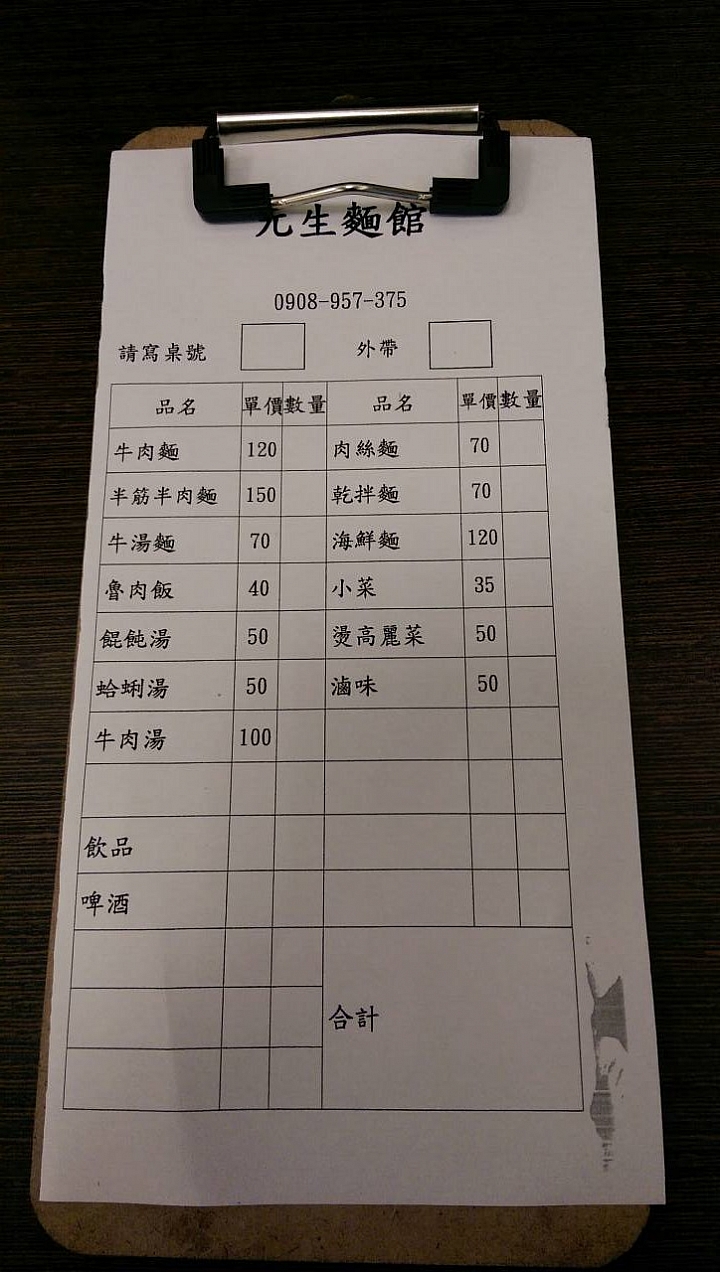 元生麵館
0908-957-375
請寫桌號 外帶
品名 單價 數量 品名 單價 數量
牛肉麵 120 肉絲麵 70
半筋半肉麵 150 乾拌麵 70
牛湯麵 70 海鮮麵 120
魯肉飯 40 小菜 35
餛飩湯 50 燙高麗菜 50
蛤蜊湯 50 滷味 50
牛肉湯 100
飲品
啤酒
合計